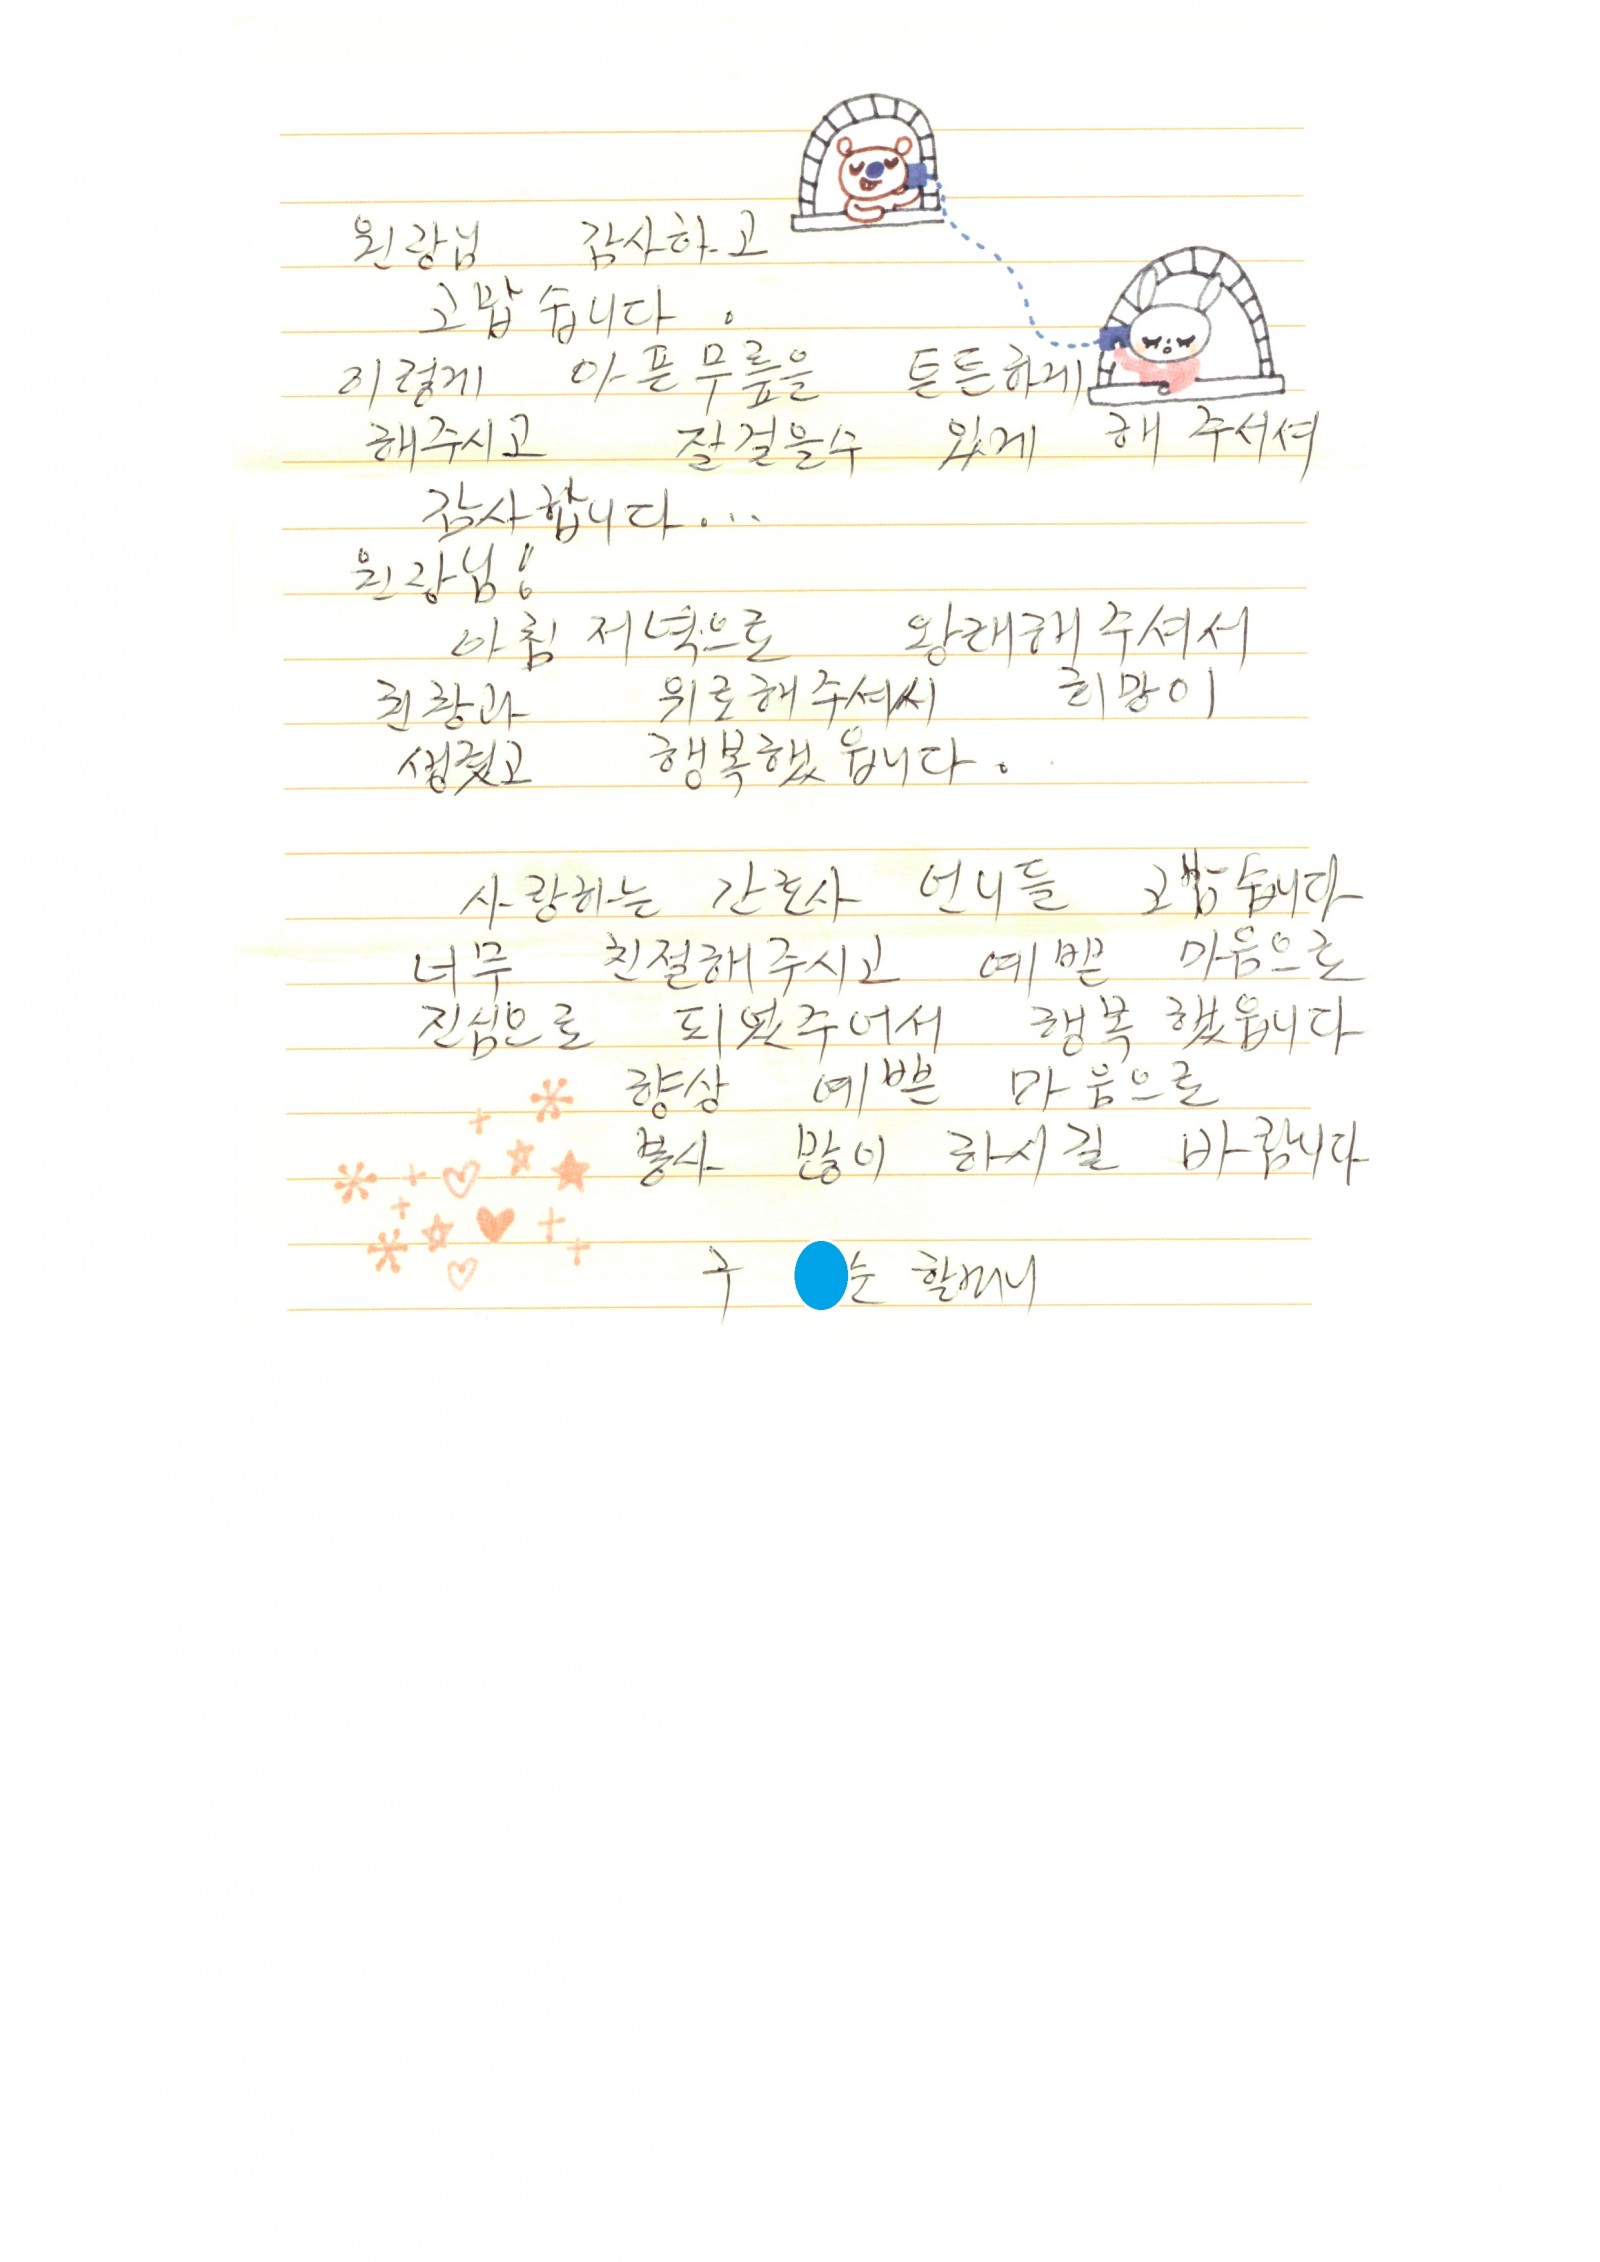 원장님 감사하고
고맙습니다.
이렇게 아픈무릎을 튼튼하게
해주시고 잘걸을수 있게 해 주서셔
감사합니다...
원장님!
아침 저녁으로 왕래해주셔서
위로해주셔서 희망이
생겼고 행복했읍니다.
사랑하는 간호사 언니들 고맙습니다
너무 친절해주시고 예쁜 마음으로
진심으로 행복했읍니다
향상 예쁜 마음으로
봉사 많이 하시길 바람니다
구 순 할머니